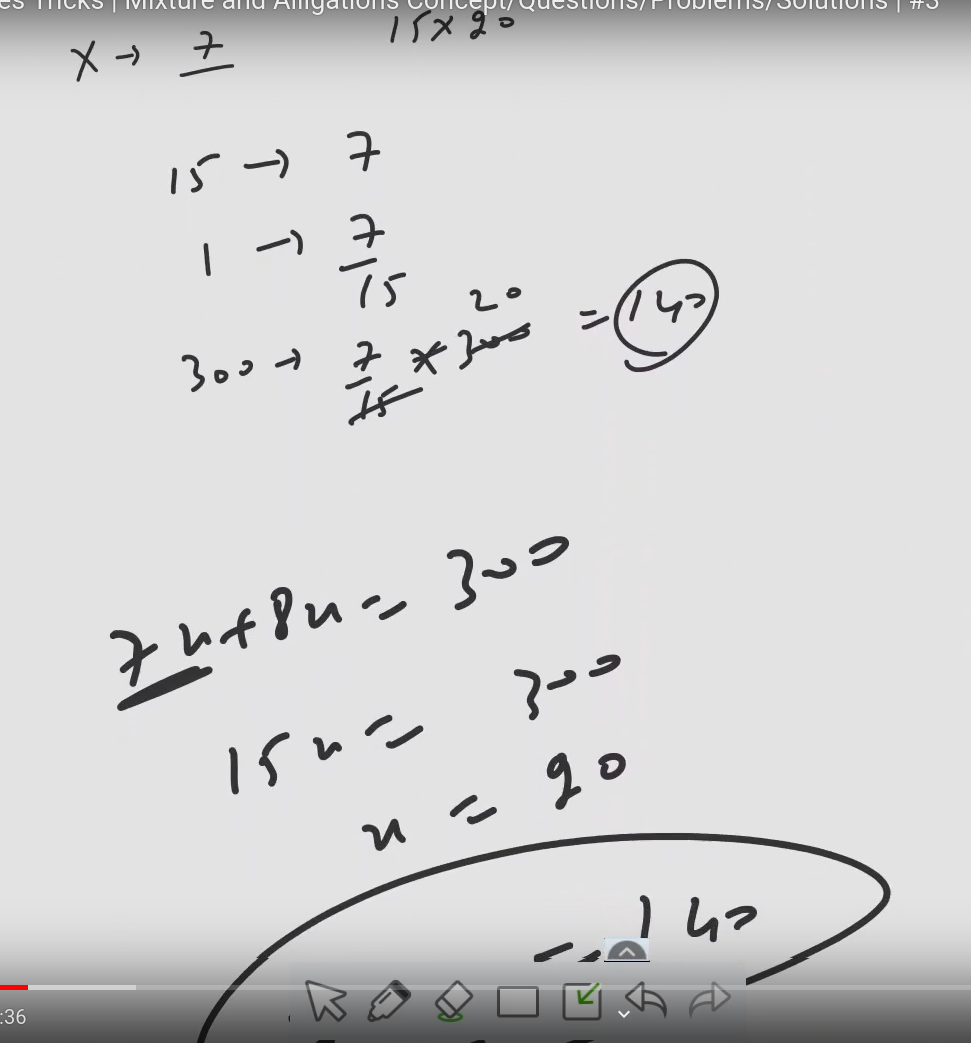 es Tricks | Mixture and Alligations Concept/Questions/Problems/Solutions | #3
15x20
X → 7
15 → 7
1 → 7/15
300 → 7/15 x 300 20 = 140
7x+8x = 300
15x = 300
x = 20
= 140
:36